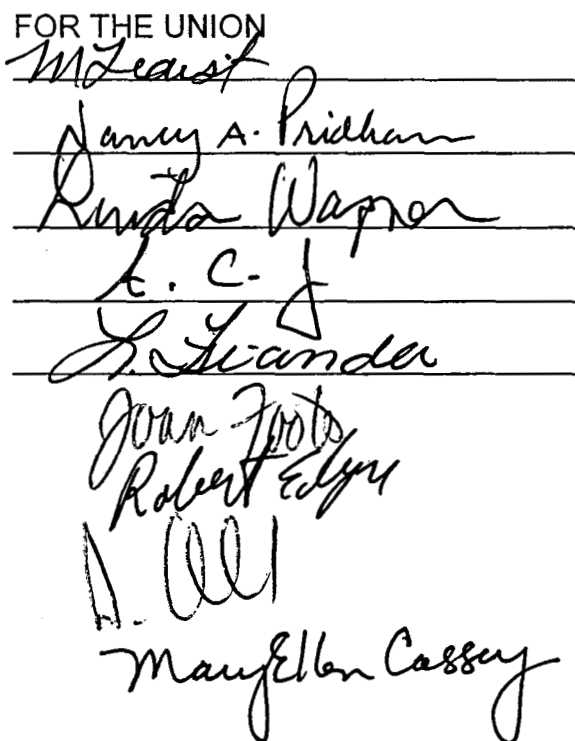 FOR THE UNION
Nancy A. Pridham
Linda Wagner
A. C. J
L. Lianda
Joan Foots
Robert Edgre
MaryEllen Cassey